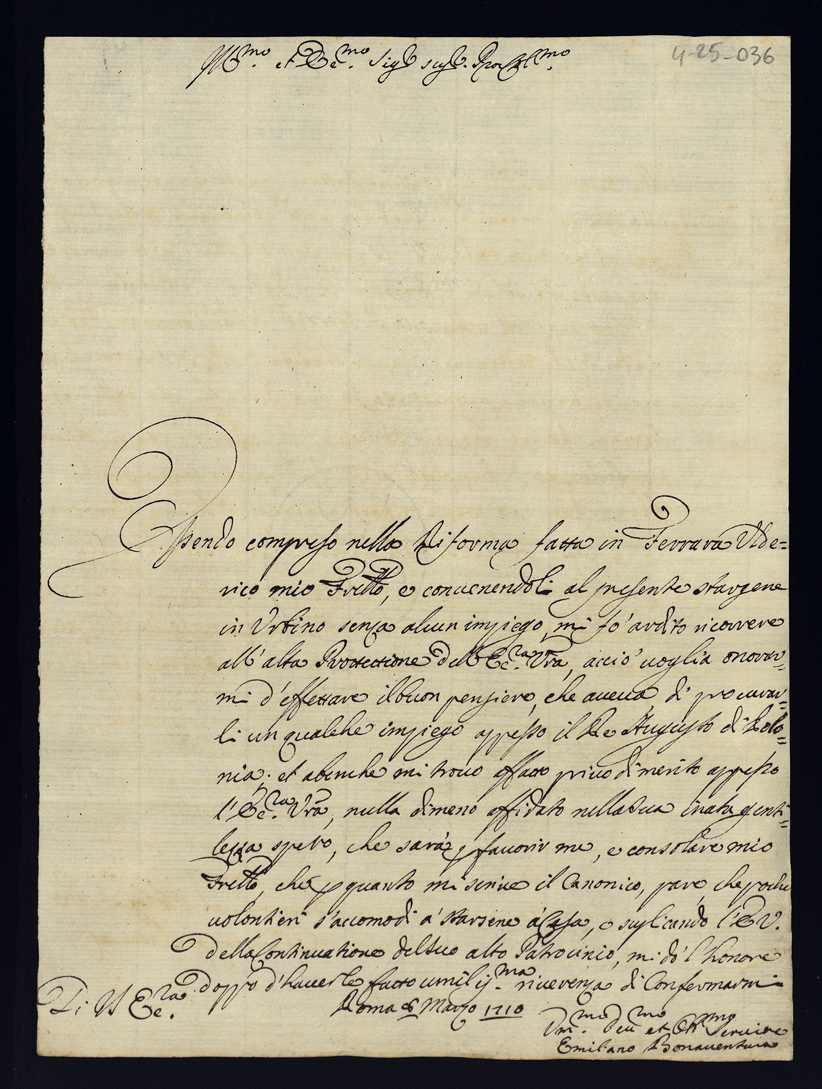 Ill.mo et Ecc.mo Sig.r Sig.r Pron Coll.mo
4-25-036
Essendo compreso nella Riforma fatta in Ferrara Ulde=
rico mio Frẽllo, e convenendoli al presente starsene
in Urbino senza alcun impiego, mi fò ardito ricorrere
all'alta Protectione dell'Ecc.za Vr̃a, acciò voglia onorar=
mi d'effettare il buon pensiero, che aveva di procurar=
li un qualche impiego appresso il Re Augusto di Polo=
nia; et abenche mi trovo affatto privo di merito appresso
l'Ecc.za Vr̃a, nulla di meno affidato nella Sua inata genti=
lezza spero, che sarà p favorir me, e consolare mio
Frẽllo, che p quanto mi scrive il Canonico, pare, che poche
volontieri s'accomodi à starsene à Casa, e suplicando l'E.V.
della Continuatione del suo alto Patrocinio, mi dò l'honore
doppo d'haverle fatto umiliss.ma riverenza di Confermarmi
Di V Ecc.za
Roma 8 Marzo 1710
Um.mo Dev.mo et Obl.mo Servitore
Emiliano Bonaventura